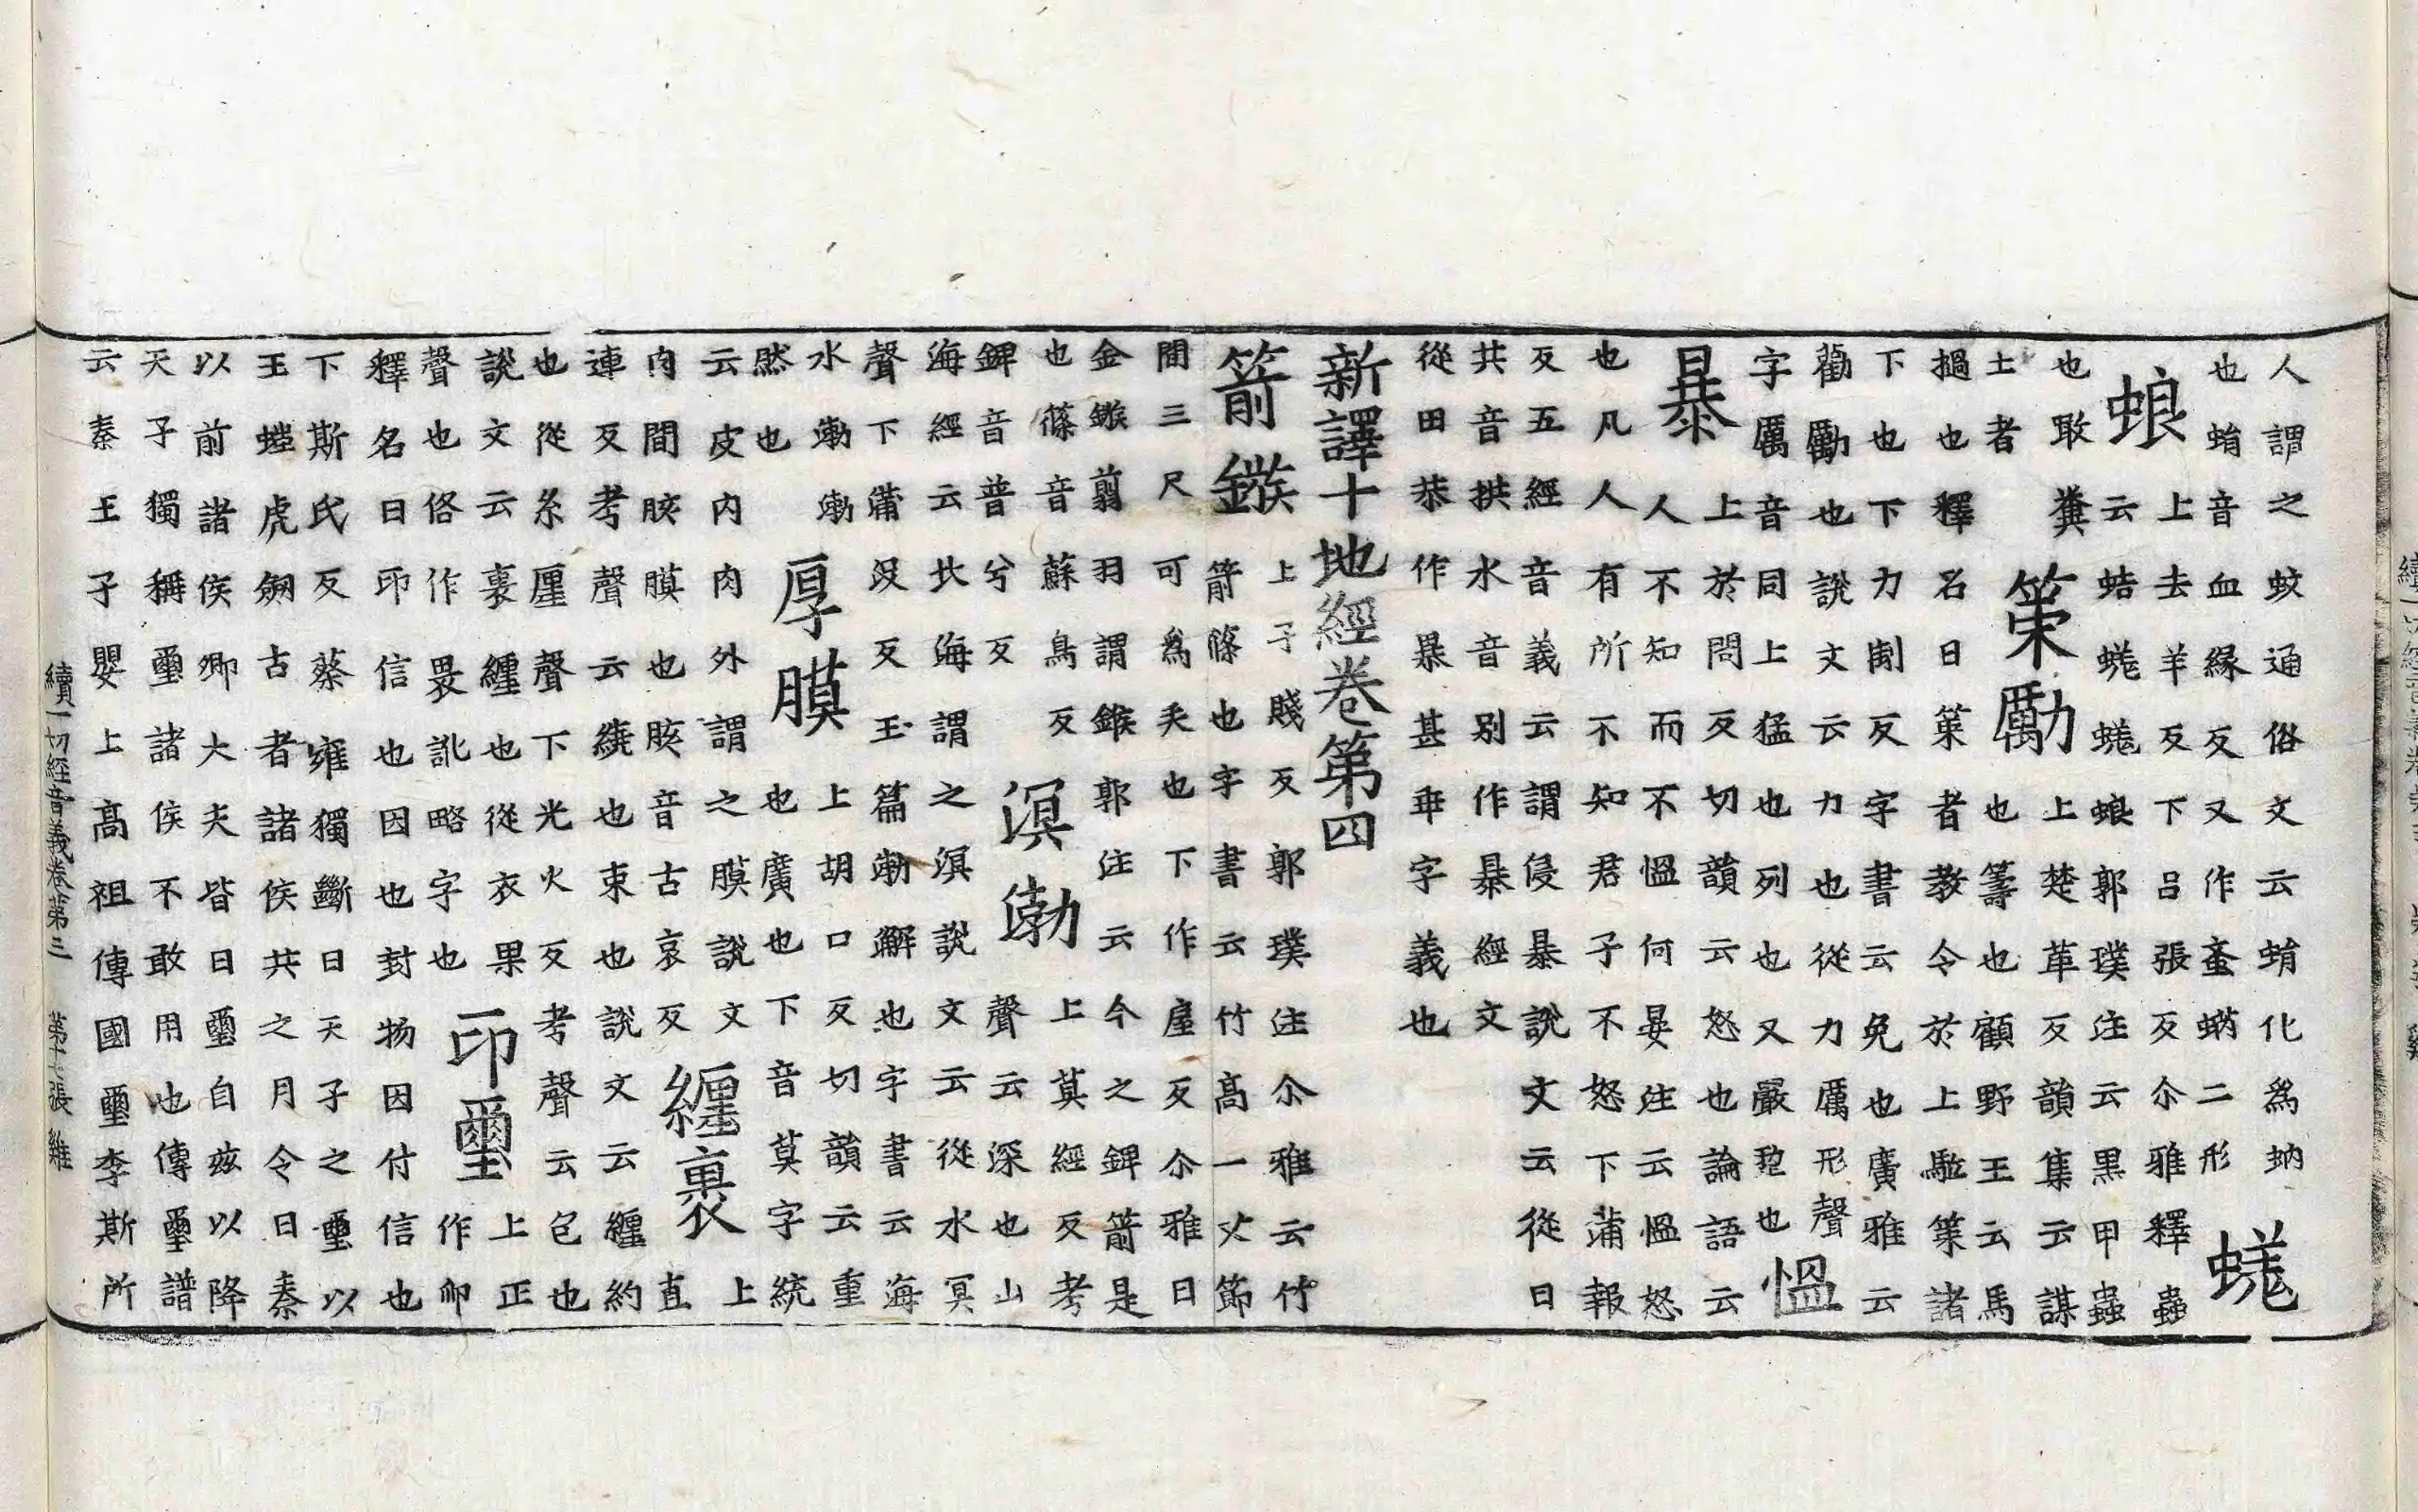 人謂之蚊通俗文云蜎化為蚋
也蜎音血緣反又作䘇蚋二形
蜣
蜋
上去羊反下呂張反尒雅釋蟲
云蛣蜣蜣蜋郭璞注云黑甲蟲
也敢糞
土者
策勵
上楚革反韻集云謀
也籌也顧野王云馬
撾也釋名曰策者教令於上駈策諸
下也下力制反字書云免也廣雅云
勸勵也說文云力也從力厲形聲
字厲音同上猛也列也又嚴也
慍
暴
上於問反切韻云怒也論語云
人不知而不慍何晏注云慍怒
也凡人有所不知君子不怒下蒲報
反五經音義云謂侵暴說文云從日
共音拱水音別作暴經文
從田恭作暴甚乖字義也
新譯十地經卷第四
箭鏃
上子賤反郭璞注尒雅云竹
箭篠也字書云竹高一丈節
間三尺可為矢也下作屋反尒雅曰
金鏃翦羽謂鍭郭注云今之錍箭是
也篠音蘇鳥反
錍音普兮反
溟渤
上莫經反考
聲云深也山
海經云北海謂之溟說文云從水冥
聲下蒲沒反玉篇渤澥也字書云海
水渤渤
然也
厚膜
上胡口反切韻云重
也廣也下音莫字統
云皮內肉外謂之膜說文
肉間胲膜也胲音古哀反
纏裹
上
直
連反考聲云繞也束也說文云纏約
也從糸㕓聲下光火反考聲云包也
說文云裹纏也從衣果
聲也俗作畏訛略字也
印璽
上正
作𠨍
釋名曰印信也因也封物因付信也
下斯氏反蔡雍獨斷曰天子之璽以
玉螭虎劒古者諸侯共之月令曰秦
以前諸侯卿大夫皆曰璽自茲以降
天子獨稱璽諸侯不敢用也傳璽譜
云秦王子嬰上高祖傳國璽李斯所
續一切經音義卷第三 第十七張 雞